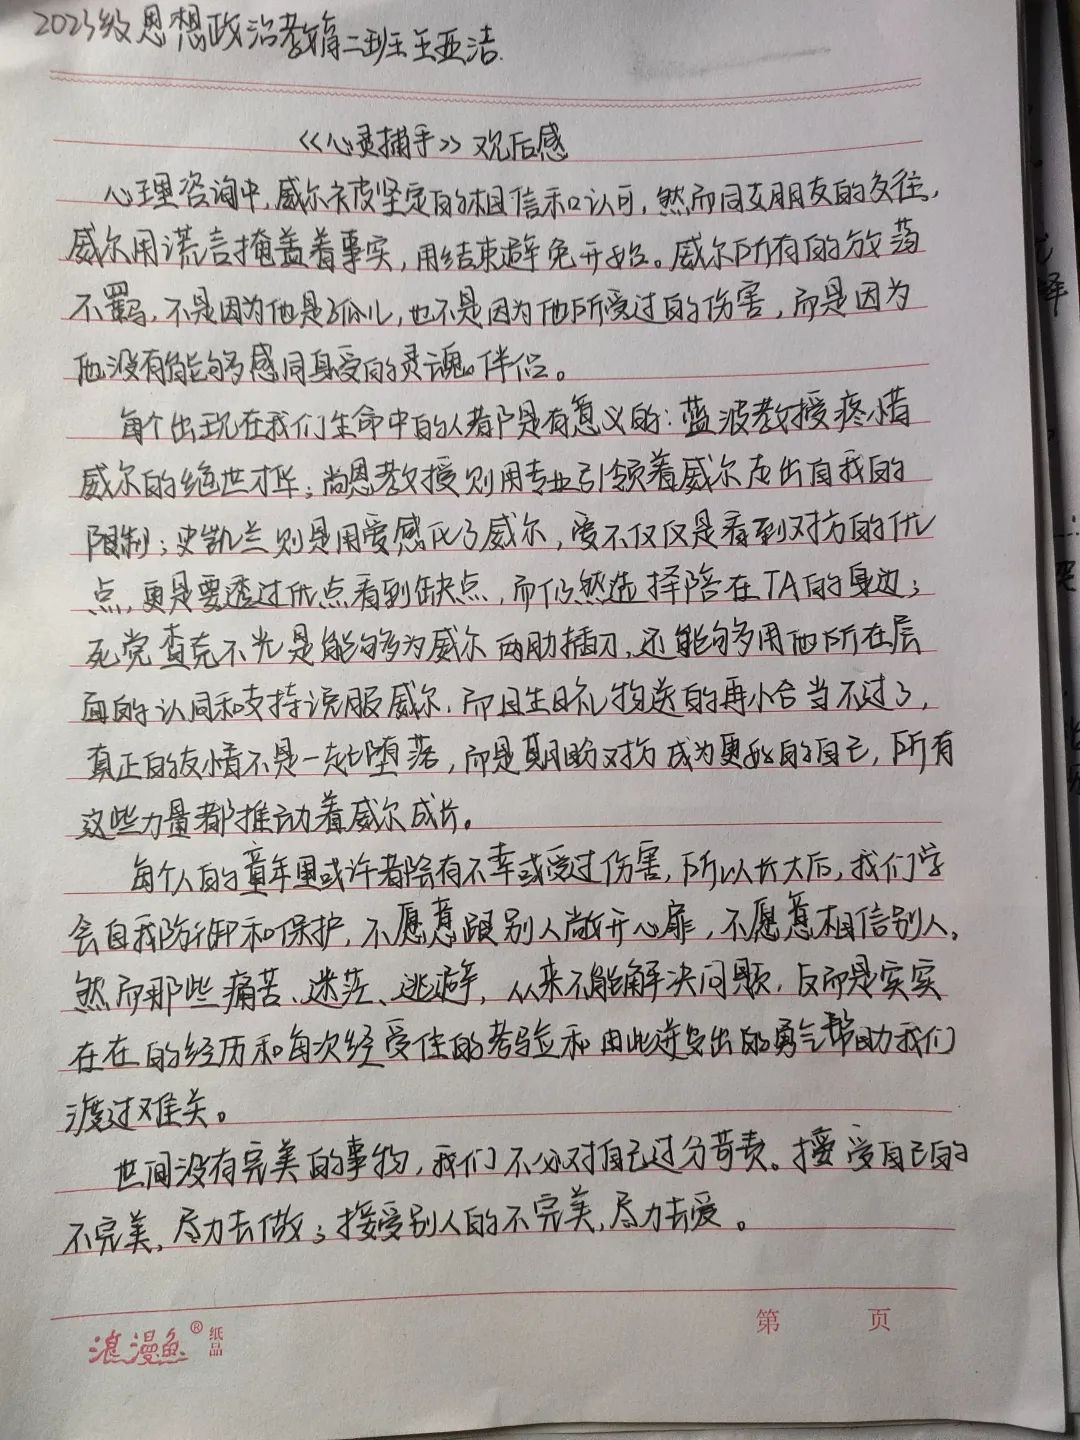 2023级思想政治教育二班王亚洁
《心灵捕手》观后感
心理咨询中,威尔被坚定的相信和认可,然而同女朋友的交往,
威尔用谎言掩盖着事实,用结束避免开始。威尔所有的放荡
不羁,不是因为他是孤儿,也不是因为他所受过的伤害,而是因为
他没有能够感同身受的灵魂伴侣。
每个出现在我们生命中的人都是有意义的:蓝波教授疼惜
威尔的绝世才华;尚恩教授则用专业引领着威尔走出自我的
限制;史凯兰则是用爱感化了威尔,爱不仅仅是看到对方的优
点,更是要透过优点看到缺点,而仍然选择陪在TA的身边;
死党查克不光是能够为威尔两肋插刀,还能够用他所在层
面的认同和支持说服威尔,而且生日礼物送的再合当不过了,
真正的友情不是一起堕落,而是期盼对方成为更好的自己,所有
这些力量都推动着威尔成长。
每个人的童年里或许都会有不幸或受过伤害,所以长大后,我们学
会自我防御和保护,不愿意跟别人敞开心扉,不愿意相信别人。
然而那些痛苦、迷茫、逃避,从来不能解决问题,反而是实实
在在的经历和每次经受住的考验和由此迸发出的勇气帮助我们
渡过难关。
世间没有完美的事物,我们不必对自己过分苛责。接受自己的
不完美,尽力去做;接受别人的不完美,尽力去爱。
浪漫鱼®纸品
第 页